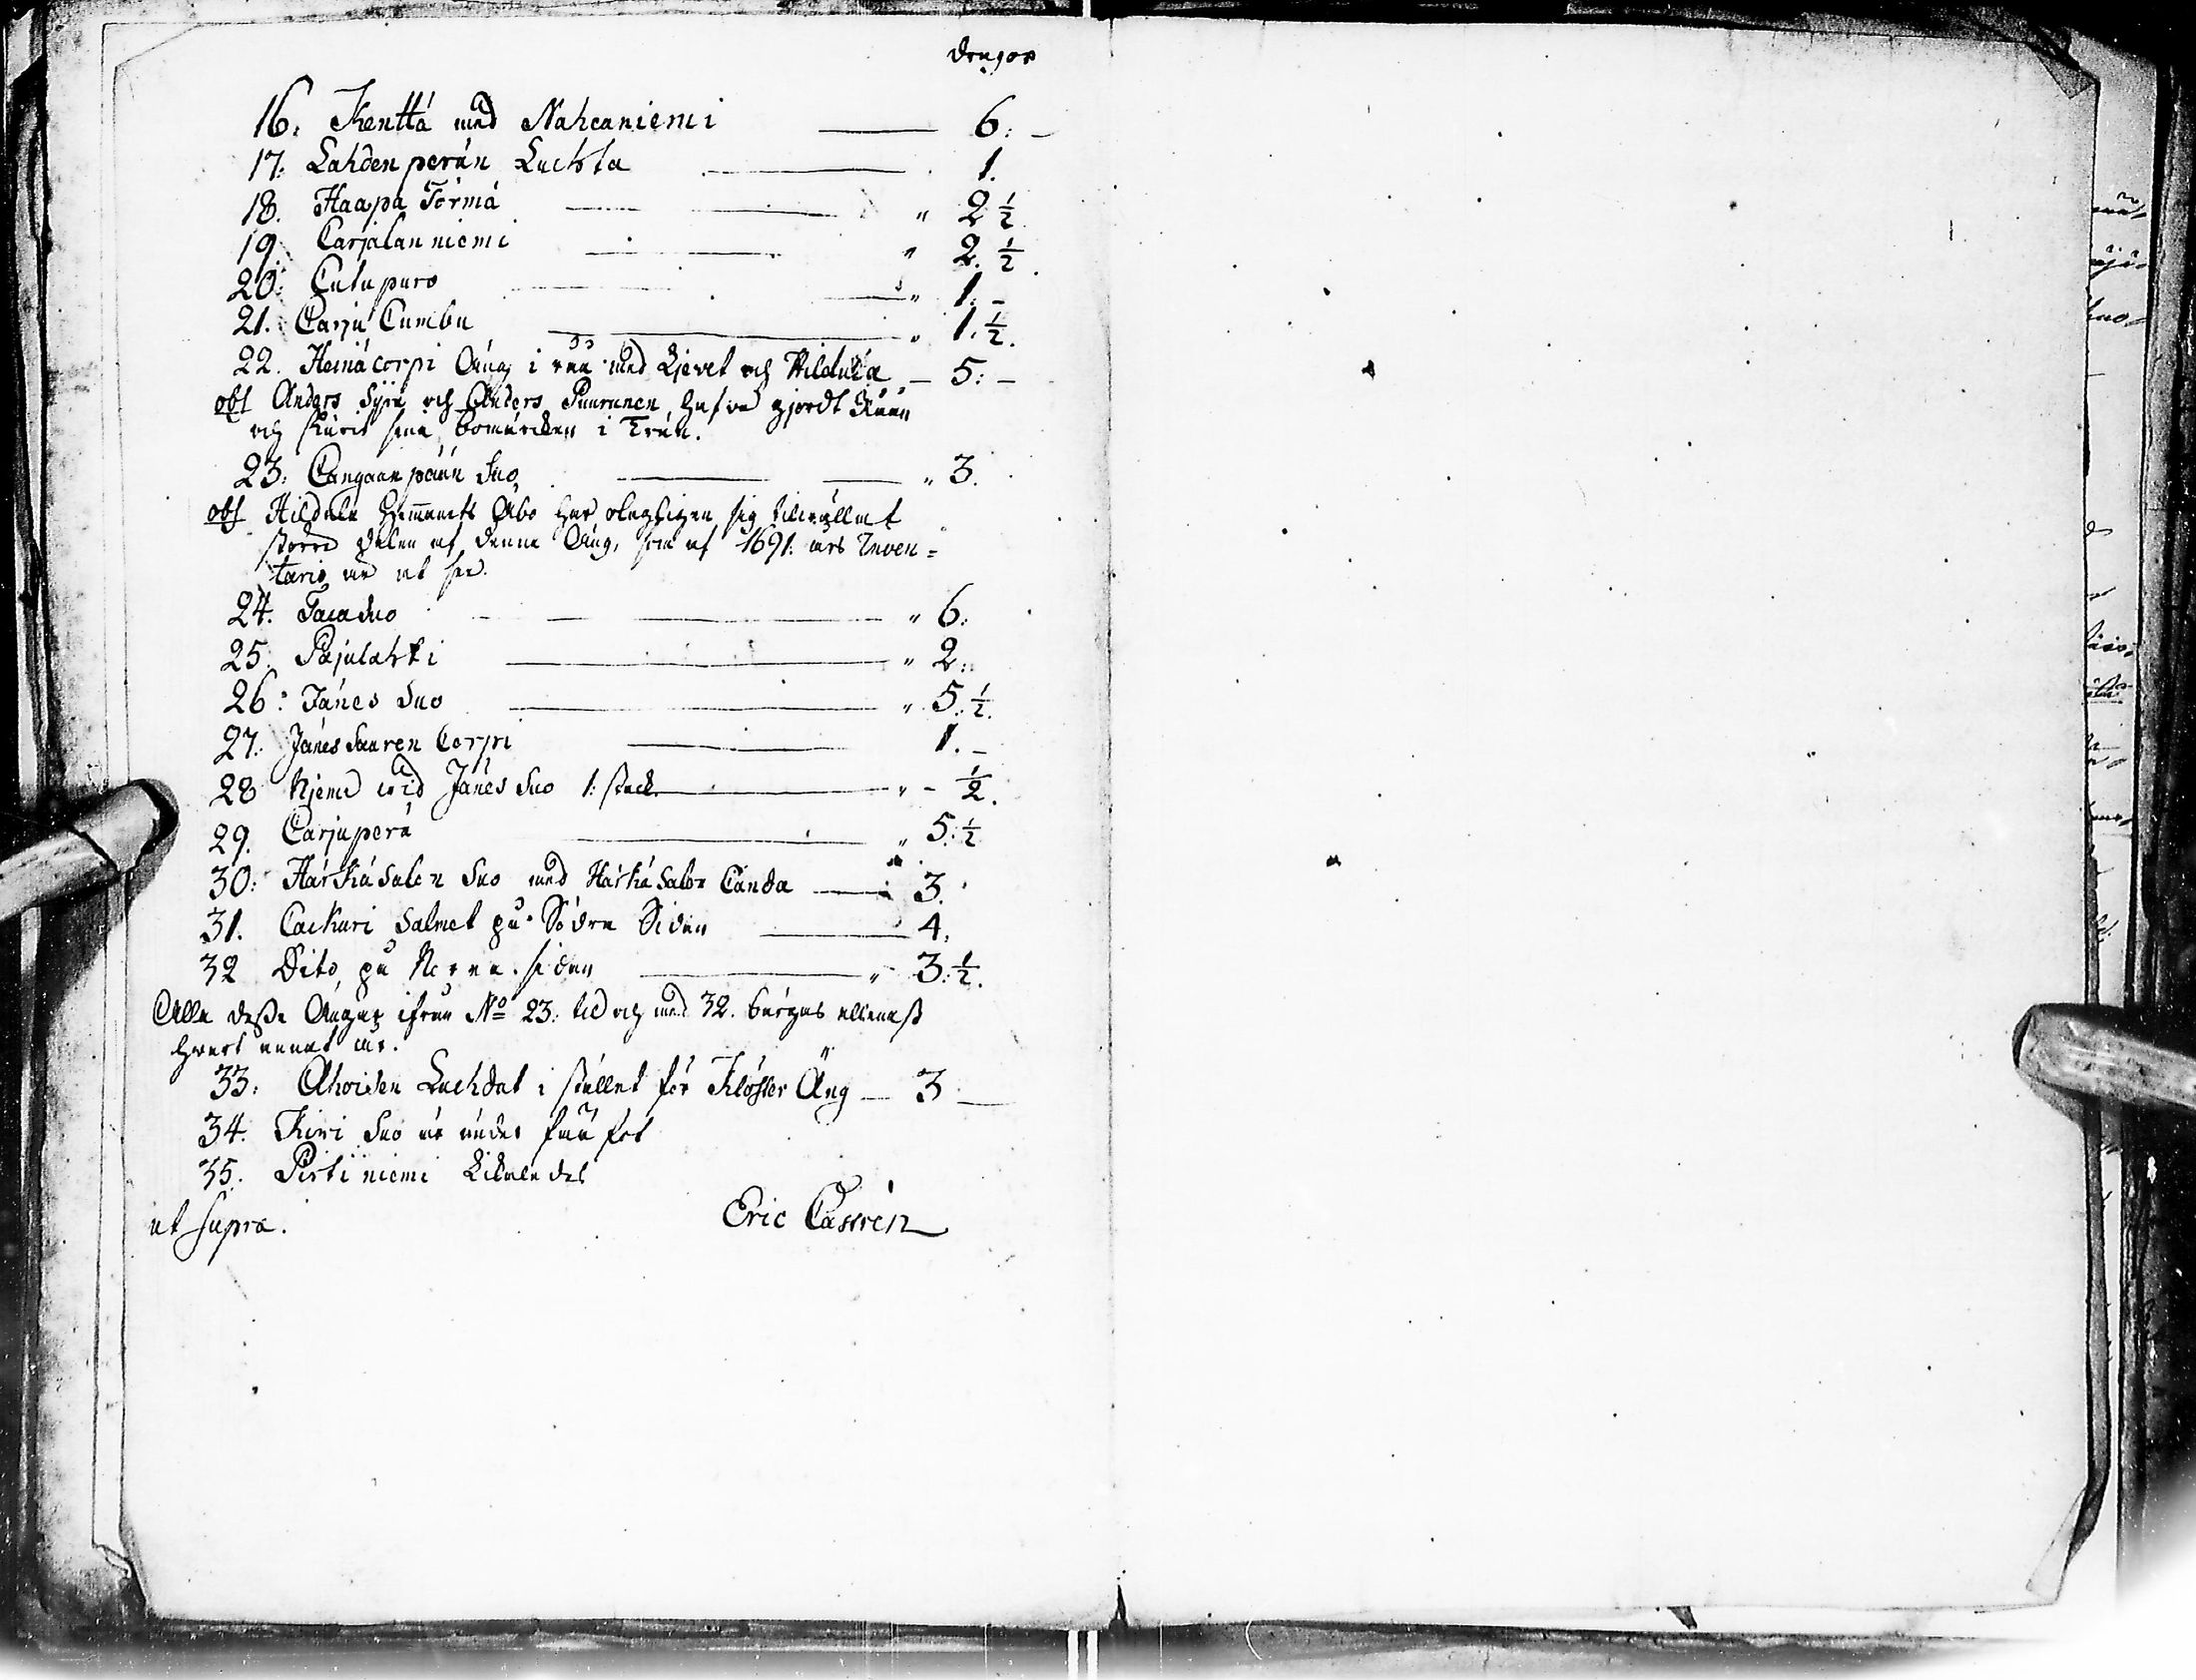 drygor
16. Kenttä med Nahcaniemi — 6: –
17. Lahdenperän Luchta — 1.
18. Haapa Törmä — " 2 ½
19. Carjalan niemi — " 2. ½
20: Cutu puro — " 1. –
21. Carju Cumbu — " 1. ½.
22. Heinäcorpi Äng i råå med Kjevet och Hildula – 5: –
obs Anders Syri och Anders Puurunen hafva gjordt Råån
och skurit sina bomärcken i Trän.
23: Cangaan pään Suo — " 3.
obs Hildula Hemmants Åbo har olagligen sig tillvällat
större delen af denna Äng, som af 1691. års Inven=
tario är at see.
24. Taca Suo — " 6:
25. Pajulahti — " 2:
26: Jänes Suo — " 5: ½.
27. Jänes Saaren Corpi — 1. –
28 Njemi vid Jänes Suo 1: stack — " – ½.
29. Carjuperä — " 5: ½
30: Härkäsalon Suo med Härkä Salon Canda — 3.
31. Cackuri Salmet på Södra Sidan — 4.
32 Dito på Norra sidan — " 3: ½.
Alla desse Ängar ifrån No 23: till och med 32. bärgas allenast
hvart annat år.
33: Ahoisen Luchdat i stället för Klöfster Äng — 3 —
34. Kivi Suo är under
35. Pirtiniemi Likaledes
ut supra. Eric Castrén